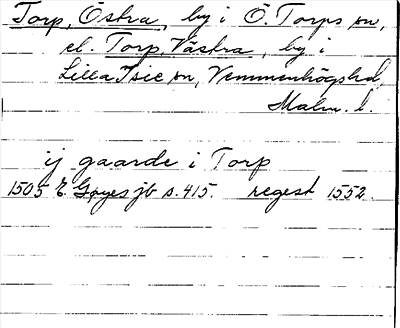 Torp, Östra, by i Ö. Torps sn,
el. Torp, Västra, by i
Lilla Isie sn, Vemmenhögshd,
Malm. l.
ij gaarde i Torp
1505 E. Gøyes jb s. 415. regest 1552.